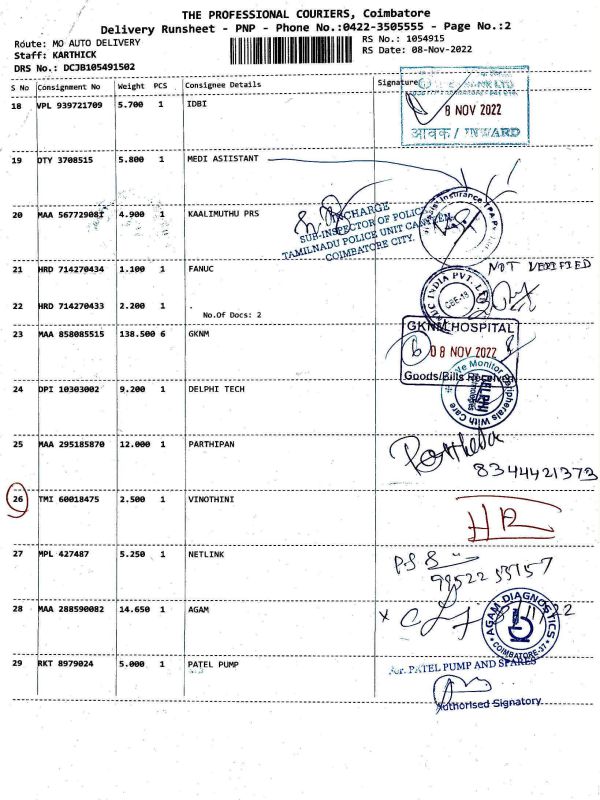 THE PROFESSIONAL COURIERS, Coimbatore
Delivery Runsheet - PNP - Phone No.:0422-3505555 - Page No.:2
Route: MO AUTO DELIVERY
RS No.: 1054915
Staff: KARTHICK
RS Date: 08-Nov-2022
DRS No.: DCJB105491502
S No Consignment No Weight PCS Consignee Details Signature
18 VPL 939721709 5.700 1 IDBI
8 NOV 2022
आवक / INWARD
19 DTY 3708515 5.800 1 MEDI ASIISTANT
20 MAA 567729081 4.900 1 KAALIMUTHU PRS
SUB-INSPECTOR OF POLICE
TAMILNADU POLICE UNIT CANTEEN
COIMBATORE CITY.
21 HRD 714270434 1.100 1 FANUC
NOT VERIFIED
INDIA PVT. LTD
CBE-18
22 HRD 714270433 2.200 1 .
No.Of Docs: 2
23 MAA 858085515 138.500 6 GKNM
GKNM HOSPITAL
08 NOV 2022
Goods/Bills Received
24 DPI 10303002 9.200 1 DELPHI TECH
We Monitor Peripherals With Care
DELPHI
25 MAA 295185870 12.000 1 PARTHIPAN
8344421373
26 TMI 60018475 2.500 1 VINOTHINI
HR
27 MPL 427487 5.250 1 NETLINK
28 MAA 288590082 14.650 1 AGAM
AGAM DIAGNOSTICS
COIMBATORE-37
29 RKT 8979024 5.000 1 PATEL PUMP
For PATEL PUMP AND SPARES
Authorised Signatory